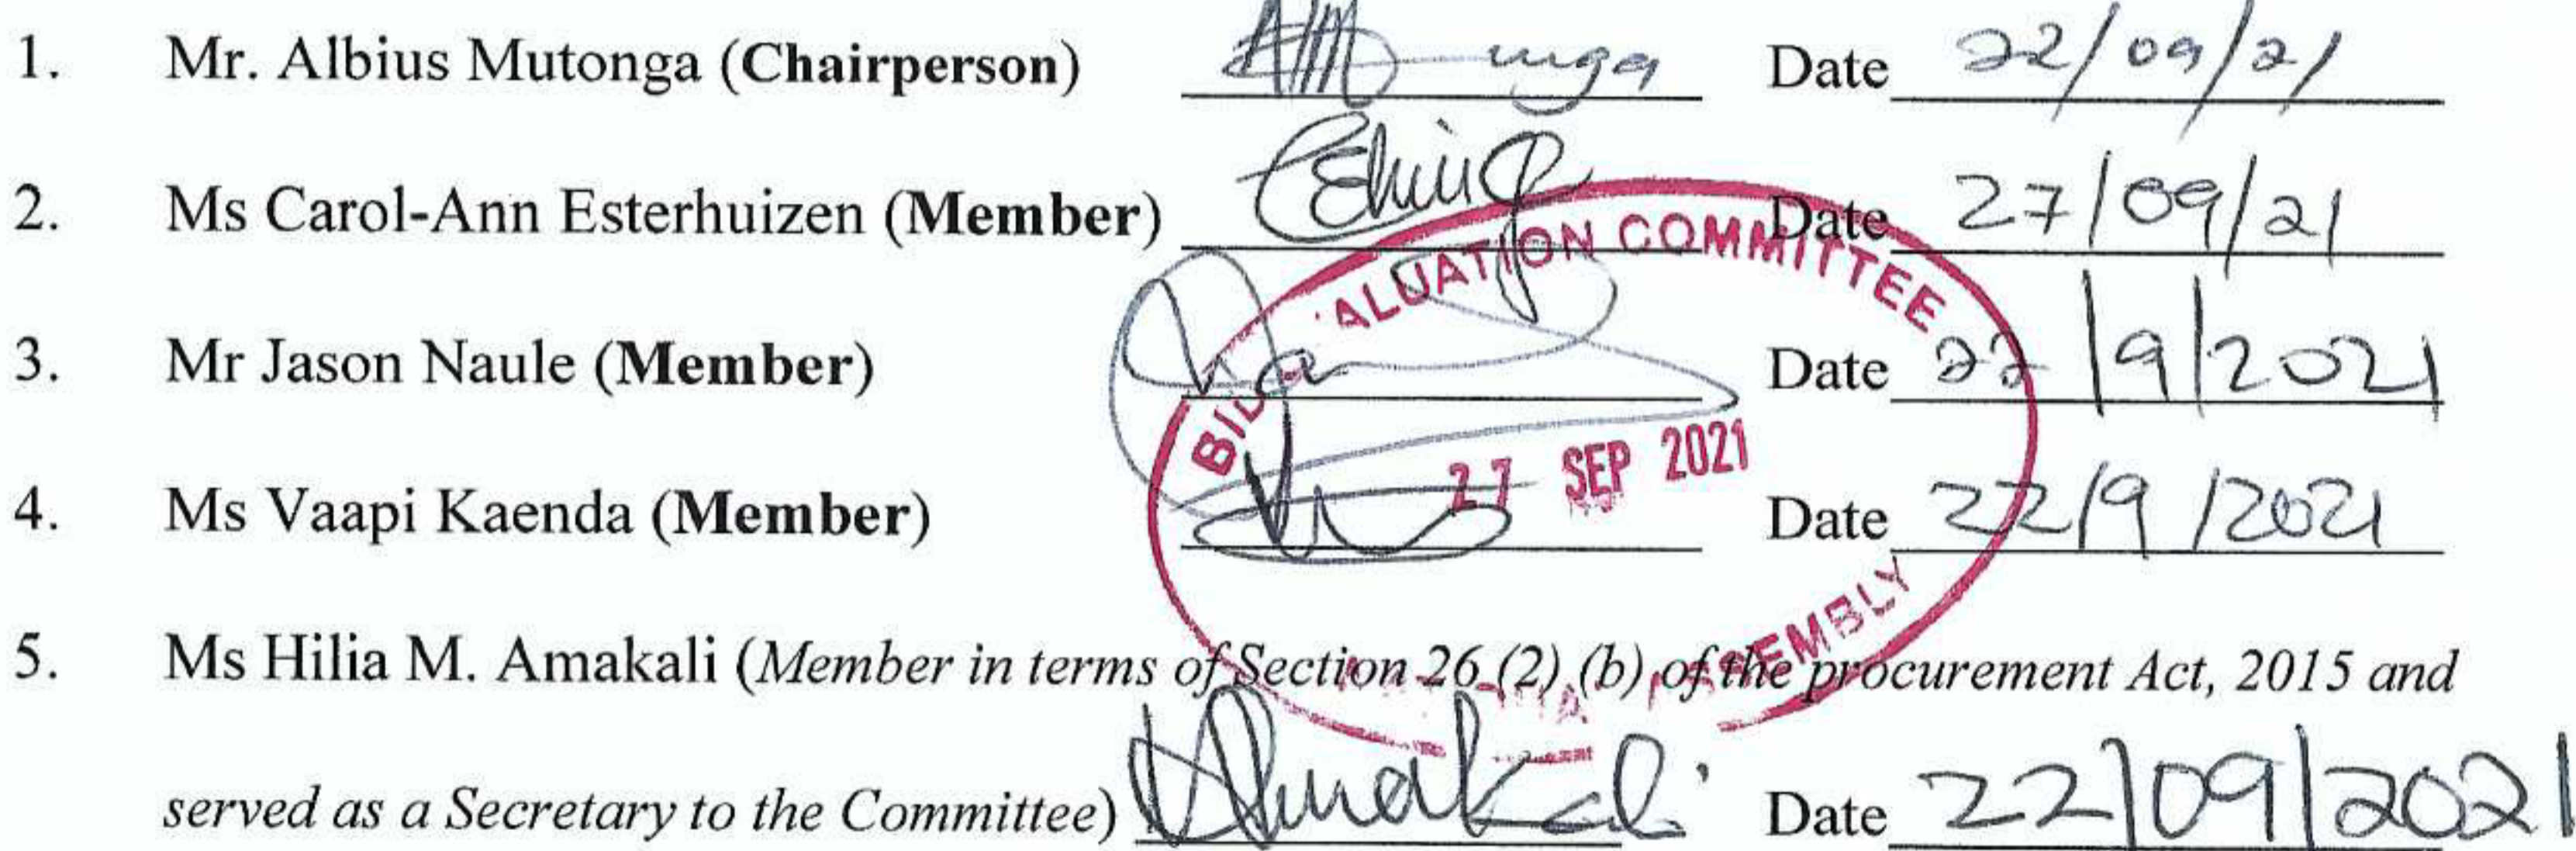 1. Mr. Albius Mutonga (Chairperson) Date 22/09/21
2. Ms Carol-Ann Esterhuizen (Member) Date 27/09/21
3. Mr Jason Naule (Member) Date 22/9/2021
4. Ms Vaapi Kaenda (Member) Date 22/9/2021
5. Ms Hilia M. Amakali (Member in terms of Section 26 (2) (b) of the procurement Act, 2015 and
served as a Secretary to the Committee) Amakali Date 22/09/2021
COMMITTEE
27 SEP 2021